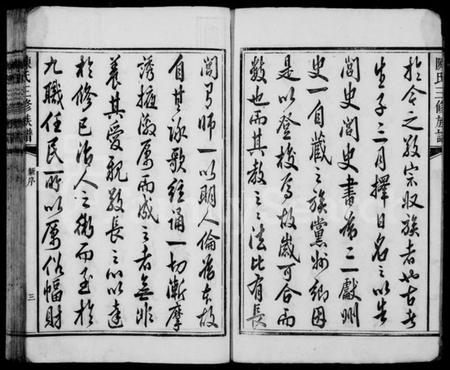 陳氏三修族譜
於今之敬宗收族者也古者
生子三月擇日名之以告
閭史閭史書為二一獻州
史一自藏之族黨州鄉因
是以登校焉故歲可合而
數也而其教之之法比有長
閭有師一以明人倫為本故
自其詠歌絃誦一切漸摩
誘掖激厲而成之者無非
養其愛親敬長之心以達
於修己治人之術而至於
九職任民所以厚俗幅財
陳氏三修族譜
序
三